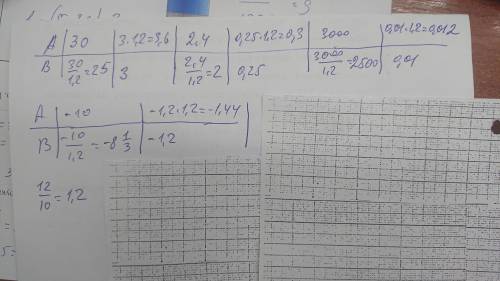 A | 30 | 3·1,2=3,6 | 2,4 | 0,25·1,2=0,3 | 3000 | 0,01·1,2=0,012
B | 30/1,2=25 | 3 | 2,4/1,2=2 | 0,25 | 3000/1,2=2500 | 0,01
A | -10 | -1,2·1,2=-1,44
B | -10/1,2=-8 1/3 | -1,2
12/10=1,2